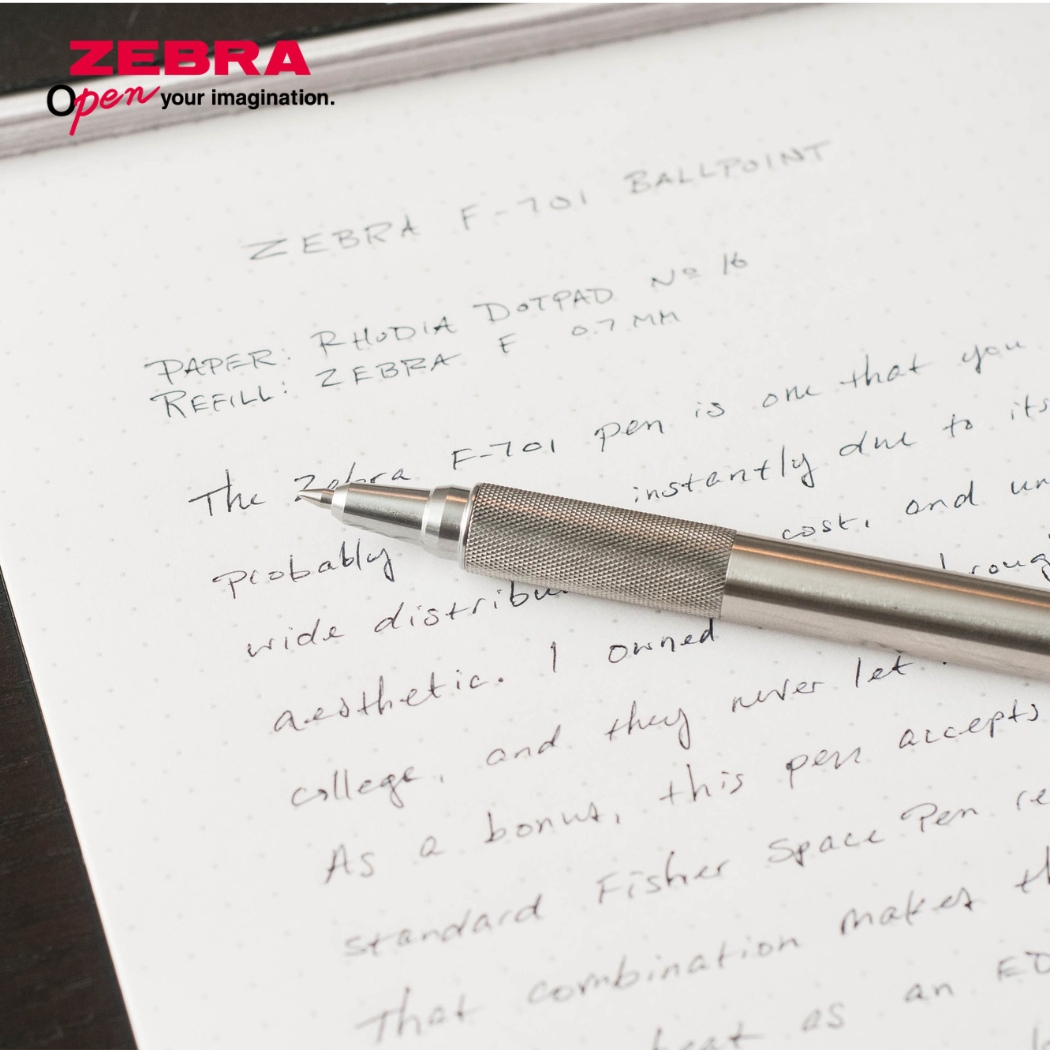 ZEBRA
Open your imagination.
ZEBRA F-701 BALLPOINT
PAPER: RHODIA DOTPAD Nº 16
REFILL: ZEBRA F 0.7 MM
The Zebra F-701 pen is one that you
probably instantly due to its
wide distribu cost, and un
aesthetic. I owned
college, and they never let
As a bonus, this pen accepts
standard Fisher Space Pen re
That combination makes th
as an ED